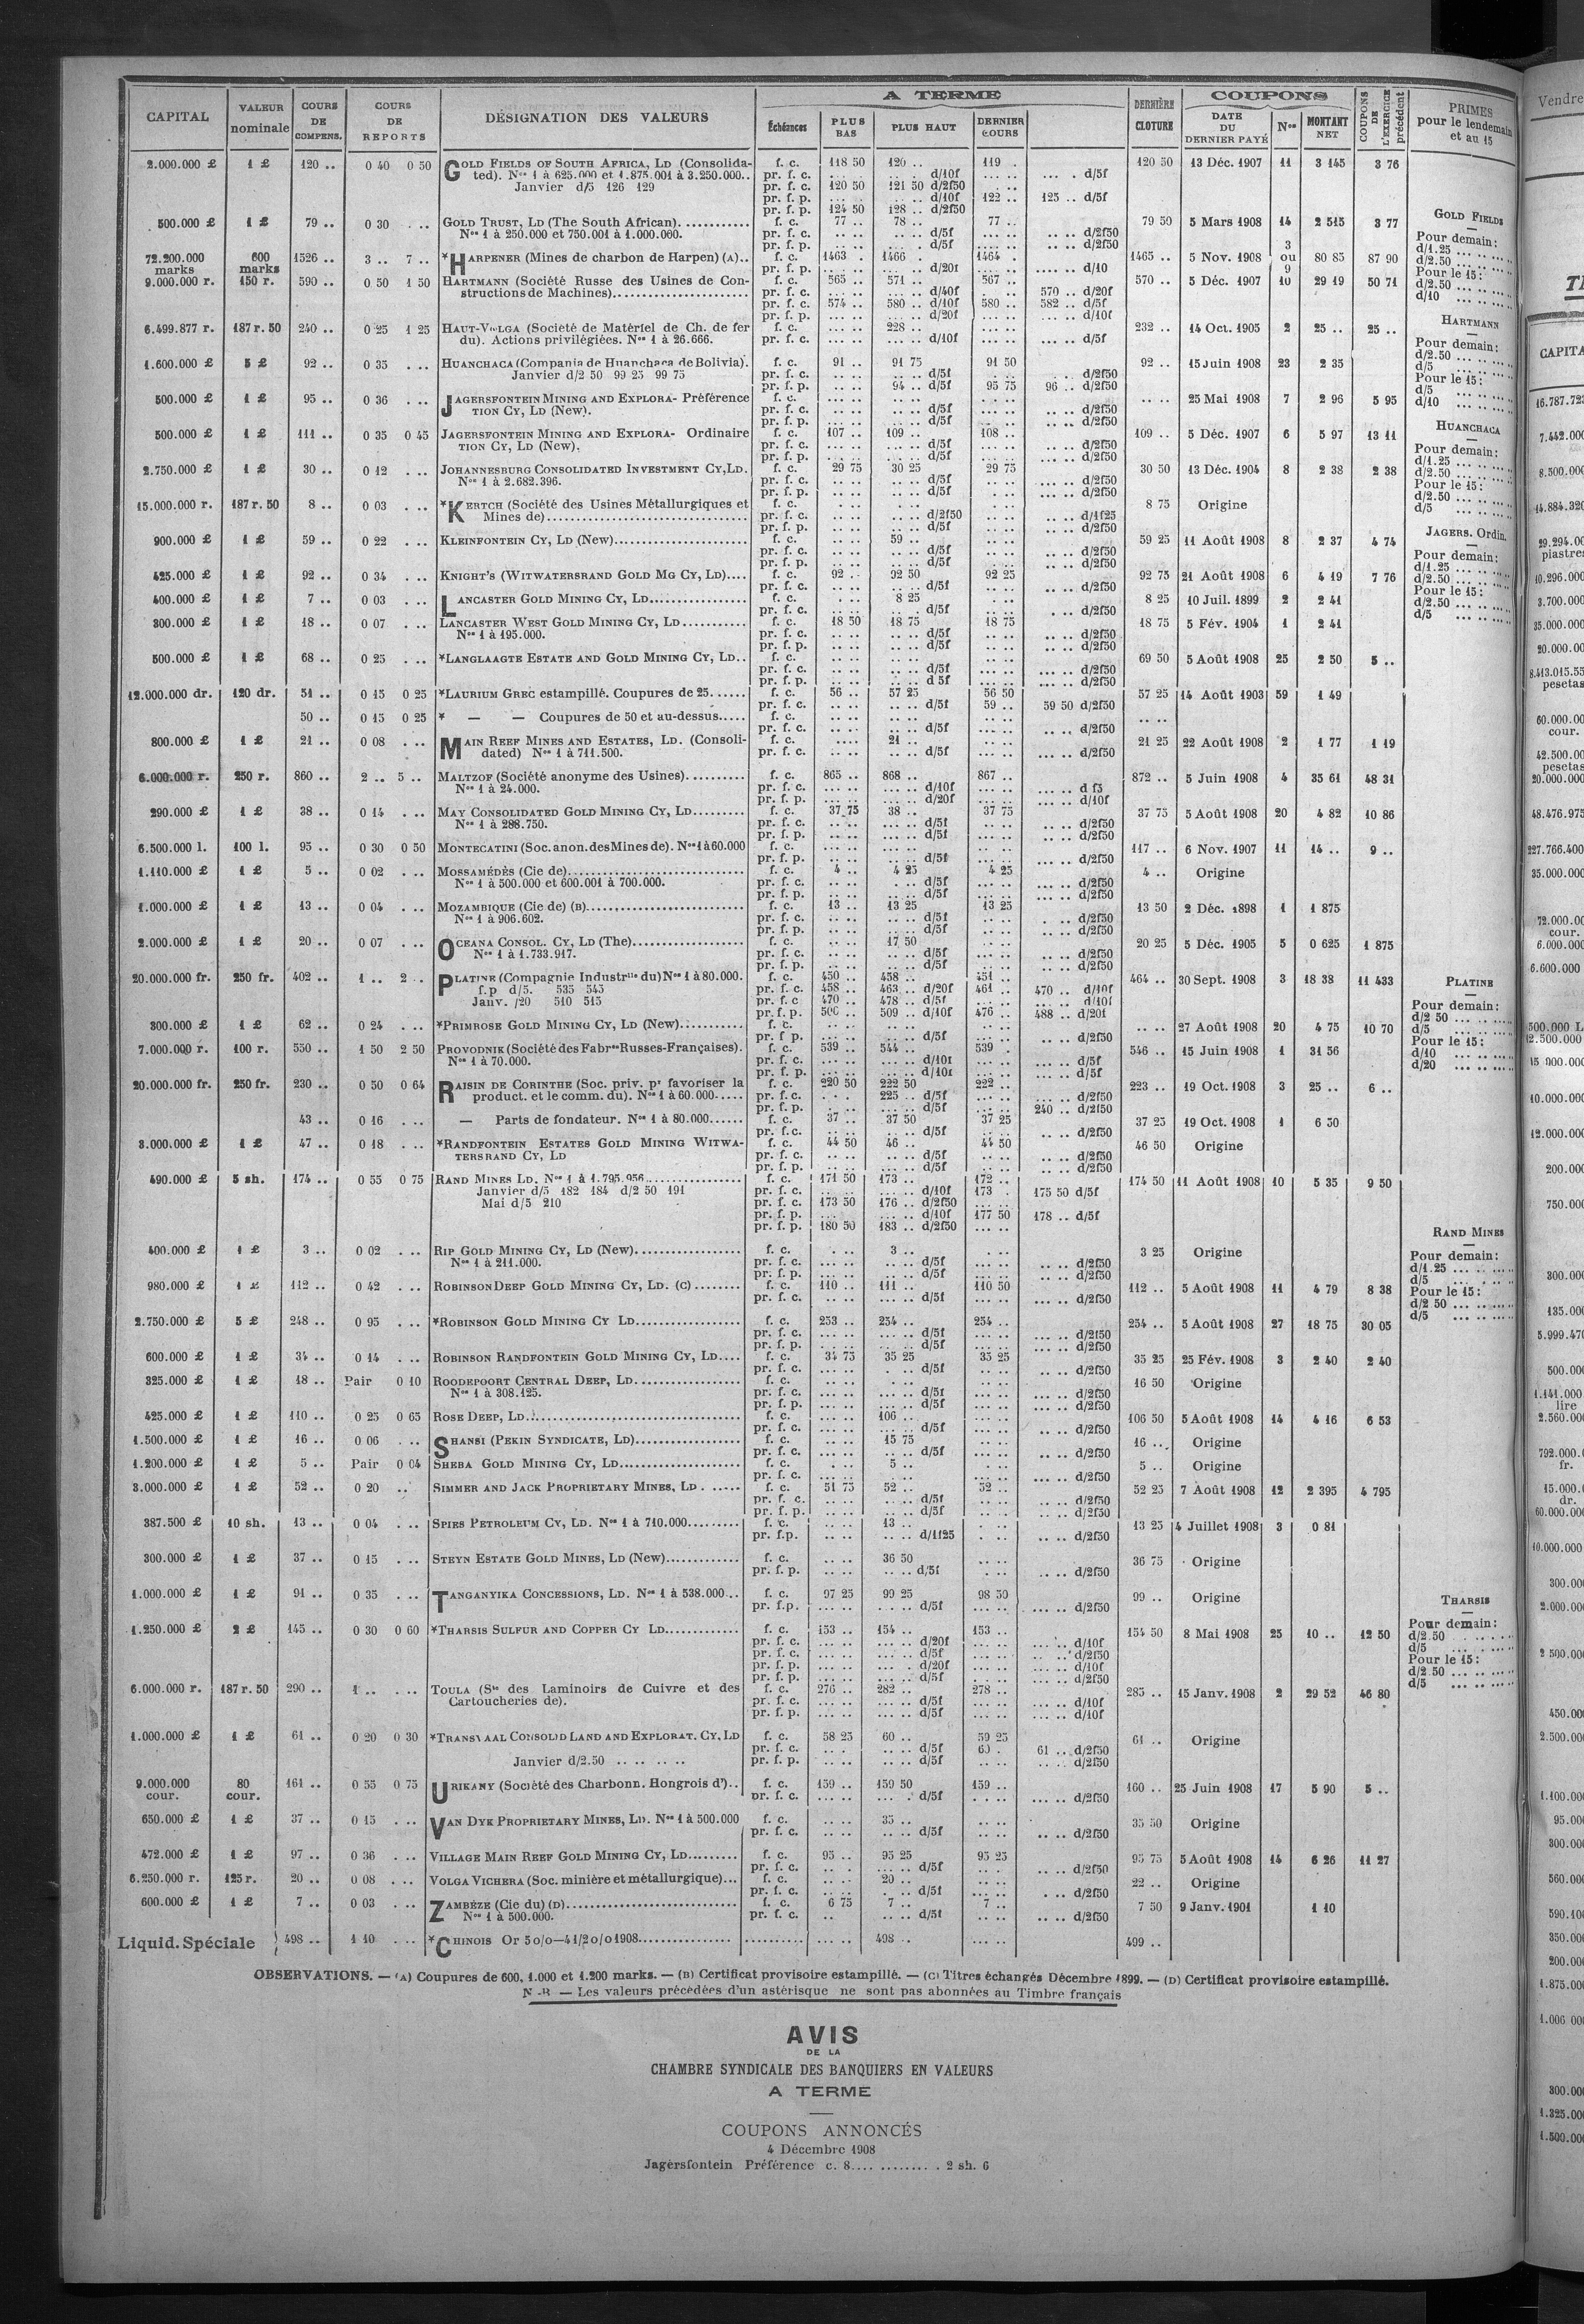 CAPITAL | VALEUR nominale | COURS DE COMPENS. | COURS DE REPORTS | DÉSIGNATION DES VALEURS | A TERME | DERNIÈRE CLOTURE | COUPONS | COUPONS DE L'EXERCICE précédent | PRIMES pour le lendemain et au 15
Échéances | PLUS BAS | PLUS HAUT | DERNIER COURS | DATE DU DERNIER PAYÉ | Nos | MONTANT NET
2.000.000 £ 1 £ 120 .. 0 40 0 50 GOLD FIELDS OF SOUTH AFRICA, LD (Consolida- f. c. 118 50 120 .. 119 . 120 50 13 Déc. 1907 11 3 145 3 76
ted). Nos 1 à 625.000 et 1.875.001 à 3.250.000.. pr. f. c. d/10f d/5f
Janvier d/5 126 129 pr. f. c. 120 50 121 50 d/2f50
pr. f. p. d/10f 122 .. 125 .. d/5f
pr. f. p. 124 50 128 .. d/2f50
500.000 £ 1 £ 79 .. 0 30 GOLD TRUST, LD (The South African) f. c. 77 .. 78 .. 77 .. 79 50 5 Mars 1908 14 2 515 3 77
Nos 1 à 250.000 et 750.001 à 1.000.000. pr. f. c. d/5f d/2f50
pr. f. p. d/5f d/2f50
72.200.000 marks 600 marks 1526 .. 3 .. 7 .. *HARPENER (Mines de charbon de Harpen) (A).. f. c. 1463 . 1466 . 1464 . 1465 .. 5 Nov. 1908 3 ou 9 80 85 87 90
pr. f. p. d/20f d/10
9.000.000 r. 150 r. 590 .. 0 50 1 50 HARTMANN (Société Russe des Usines de Con- f. c. 565 .. 571 .. 567 .. 570 .. 5 Déc. 1907 10 29 19 50 71
structions de Machines) pr. f. c. d/40f 570 .. d/20f
pr. f. c. 574 .. 580 .. d/10f 580 .. 582 .. d/5f
pr. f. p. d/20f d/10f
6.499.877 r. 187 r. 50 240 .. 0 25 1 25 HAUT-VOLGA (Société de Matériel de Ch. de fer f. c. 228 .. 232 .. 14 Oct. 1905 2 25 .. 25 ..
du). Actions privilégiées. Nos 1 à 26.666. pr. f. c. d/10f d/5f
1.600.000 £ 5 £ 92 .. 0 35 HUANCHACA (Compania de Huanchaca de Bolivia). f. c. 91 .. 91 75 91 50 92 .. 15 Juin 1908 23 2 35
Janvier d/2 50 99 25 99 75 pr. f. c. d/5f d/2f50
pr. f. p. 94 .. d/5f 95 75 96 .. d/2f50
500.000 £ 1 £ 95 .. 0 36 JAGERSFONTEIN MINING AND EXPLORA- Préférence f. c. 25 Mai 1908 7 2 96 5 95
TION CY, LD (New). pr. f. c. d/5f d/2f50
pr. f. p. d/5f d/2f50
500.000 £ 1 £ 111 .. 0 35 0 45 JAGERSFONTEIN MINING AND EXPLORA- Ordinaire f. c. 107 .. 109 .. 108 .. 109 .. 5 Déc. 1907 6 5 97 13 11
TION CY, LD (New). pr. f. c. d/5f d/2f50
pr. f. p. d/5f d/2f50
2.750.000 £ 1 £ 30 .. 0 12 JOHANNESBURG CONSOLIDATED INVESTMENT CY, LD. f. c. 29 75 30 25 29 75 30 50 13 Déc. 1904 8 2 38 2 38
Nos 1 à 2.682.396. pr. f. c. d/5f d/2f50
pr. f. p. d/5f d/2f50
15.000.000 r. 187 r. 50 8 .. 0 03 *KERTCH (Société des Usines Métallurgiques et f. c. 8 75 Origine
Mines de) pr. f. c. d/2f50 d/1f25
pr. f. p. d/5f d/2f50
900.000 £ 1 £ 59 .. 0 22 KLEINFONTEIN CY, LD (New) f. c. 59 .. 59 25 11 Août 1908 8 2 37 4 74
pr. f. c. d/5f d/2f50
pr. f. p. d/5f d/2f50
425.000 £ 1 £ 92 .. 0 34 KNIGHT'S (WITWATERSRAND GOLD MG CY, LD).... f. c. 92 .. 92 50 92 25 92 75 21 Août 1908 6 4 19 7 76
pr. f. c. d/5f d/2f50
400.000 £ 1 £ 7 .. 0 03 LANCASTER GOLD MINING CY, LD f. c. 8 25 8 25 10 Juil. 1899 2 2 41
pr. f. c. d/5f d/2f50
300.000 £ 1 £ 18 .. 0 07 LANCASTER WEST GOLD MINING CY, LD f. c. 18 50 18 75 18 75 18 75 5 Fév. 1904 1 2 41
Nos 1 à 195.000. pr. f. c. d/5f d/2f50
pr. f. p. d/5f d/2f50
500.000 £ 1 £ 68 .. 0 25 *LANGLAAGTE ESTATE AND GOLD MINING CY, LD.. f. c. 69 50 5 Août 1908 25 2 50 5 ..
pr. f. c. d/5f d/2f50
pr. f. p. d 5f d/2f50
12.000.000 dr. 120 dr. 51 .. 0 15 0 25 *LAURIUM GREC estampillé. Coupures de 25 f. c. 56 .. 57 25 56 50 57 25 14 Août 1903 59 1 49
pr. f. c. d/5f 59 .. 59 50 d/2f50
50 .. 0 15 0 25 * — — Coupures de 50 et au-dessus..... f. c.
pr. f. c. d/5f d/2f50
800.000 £ 1 £ 21 .. 0 08 MAIN REEF MINES AND ESTATES, LD. (Consoli- f. c. 21 .. 21 25 22 Août 1908 2 1 77 1 19
dated) Nos 1 à 711.500. pr. f. c. d/5f d/2f50
6.000.000 r. 250 r. 860 .. 2 .. 5 .. MALTZOF (Société anonyme des Usines) f. c. 865 .. 868 .. 867 .. 872 .. 5 Juin 1908 4 35 61 48 31
Nos 1 à 24.000. pr. f. c. d/10f d f5
pr. f. p. d/20f d/10f
290.000 £ 1 £ 38 .. 0 14 MAY CONSOLIDATED GOLD MINING CY, LD f. c. 37 75 38 .. 37 75 37 75 5 Août 1908 20 4 82 10 86
Nos 1 à 288.750. pr. f. c. d/5f d/2f50
pr. f. p. d/5f d/2f50
6.500.000 l. 100 l. 95 .. 0 30 0 50 MONTECATINI (Soc. anon. des Mines de). Nos 1 à 60.000 f. c. 117 .. 6 Nov. 1907 11 14 .. 9 ..
pr. f. p. d/5f d/2f50
1.110.000 £ 1 £ 5 .. 0 02 MOSSAMÉDÈS (Cie de) f. c. 4 .. 4 25 4 25 4 .. Origine
Nos 1 à 500.000 et 600.001 à 700.000. pr. f. c. d/5f d/2f50
pr. f. p. d/5f d/2f50
1.000.000 £ 1 £ 13 .. 0 04 MOZAMBIQUE (Cie de) (B) f. c. 13 .. 13 25 13 25 13 50 2 Déc. 1898 1 1 875
Nos 1 à 906.602. pr. f. c. d/5f d/2f50
pr. f. p. d/5f d/2f50
2.000.000 £ 1 £ 20 .. 0 07 OCEANA CONSOL. CY, LD (The) f. c. 17 50 20 25 5 Déc. 1905 5 0 625 1 875
Nos 1 à 1.733.917. pr. f. c. d/5f d/2f50
pr. f. p. d/5f d/2f50
20.000.000 fr. 250 fr. 402 .. 1 .. 2 .. PLATINE (Compagnie Industrlle du) Nos 1 à 80.000. f. c. 450 .. 458 .. 451 .. 464 .. 30 Sept. 1908 3 18 38 11 433
f.p d/5. 535 545 pr. f. c. 458 .. 463 .. d/20f 461 .. 470 .. d/10f
Janv. /20 510 515 pr. f. c 470 .. 478 .. d/5f d/10f
pr. f. p. 506 .. 509 .. d/10f 476 .. 488 .. d/20f
300.000 £ 1 £ 62 .. 0 24 *PRIMROSE GOLD MINING CY, LD (New) f. c. 27 Août 1908 20 4 75 10 70
pr. f p. d/5f d/2f50
7.000.000 r. 100 r. 550 .. 1 50 2 50 PROVODNIK (Société des Fabres Russes-Françaises). f. c. 539 .. 544 .. 539 . 546 .. 15 Juin 1908 1 31 56
Nos 1 à 70.000. pr. f. c. d/10f d/5f
pr. f. p. d/10f d/5f
20.000.000 fr. 250 fr. 230 .. 0 50 0 64 RAISIN DE CORINTHE (Soc. priv. pr favoriser la f. c. 220 50 222 50 222 .. 223 .. 19 Oct. 1908 3 25 .. 6 ..
product. et le comm. du). Nos 1 à 60.000 pr. f. c. 225 .. d/5f d/2f50
pr. f. p. d/5f 240 .. d/2f50
43 .. 0 16 — Parts de fondateur. Nos 1 à 80.000 f. c. 37 .. 37 50 37 25 37 25 19 Oct. 1908 1 6 50
pr. f. c. d/5f d/2f50
3.000.000 £ 1 £ 47 .. 0 18 *RANDFONTEIN ESTATES GOLD MINING WITWA- f. c. 44 50 46 .. 44 50 46 50 Origine
TERSRAND CY, LD pr. f. c. d/5f d/2f50
pr. f. p. d/5f d/2f50
490.000 £ 5 sh. 174 .. 0 55 0 75 RAND MINES LD. Nos 1 à 1.795.956 f. c. 171 50 173 .. 172 .. 174 50 11 Août 1908 10 5 35 9 50
Janvier d/5 182 184 d/2 50 191 pr. f. c. d/10f 173 . 175 50 d/5f
Mai d/5 210 pr. f. c. 173 50 176 .. d/2f50
pr. f. p. d/10f 177 50 178 .. d/5f
pr. f. p. 180 50 183 .. d/2f50
400.000 £ 1 £ 3 .. 0 02 RIP GOLD MINING CY, LD (New) f. c. 3 .. 3 25 Origine
Nos 1 à 211.000. pr. f. c. d/5f d/2f50
pr. f. p. d/5f d/2f50
980.000 £ 1 £ 112 .. 0 42 ROBINSON DEEP GOLD MINING CY, LD. (C) f. c. 110 .. 111 .. 110 50 112 .. 5 Août 1908 11 4 79 8 38
pr. f. c. d/5f d/2f50
2.750.000 £ 5 £ 248 .. 0 95 *ROBINSON GOLD MINING CY LD f. c. 253 .. 254 .. 254 .. 254 .. 5 Août 1908 27 18 75 30 05
pr. f. c. d/5f d/2f50
pr. f. p. d/5f d/2f50
600.000 £ 1 £ 34 .. 0 14 ROBINSON RANDFONTEIN GOLD MINING CY, LD.... f. c. 34 75 35 25 35 25 35 25 25 Fév. 1908 3 2 40 2 40
pr. f. c. d/5f d/2f50
325.000 £ 1 £ 18 .. Pair 0 10 ROODEPOORT CENTRAL DEEP, LD f. c. 16 50 Origine
Nos 1 à 308.125. pr. f. c. d/5f d/2f50
pr. f. p. d/5f d/2f50
425.000 £ 1 £ 110 .. 0 25 0 65 ROSE DEEP, LD f. c. 106 .. 106 50 5 Août 1908 14 4 16 6 53
pr. f. c. d/5f d/2f50
1.500.000 £ 1 £ 16 .. 0 06 SHANSI (PEKIN SYNDICATE, LD) f. c. 15 75 16 .. Origine
pr. f. c. d/5f d/2f50
1.200.000 £ 1 £ 5 .. Pair 0 04 SHEBA GOLD MINING CY, LD f. c. 5 .. 5 .. Origine
pr. f. c. d/2f50
3.000.000 £ 1 £ 52 .. 0 20 SIMMER AND JACK PROPRIETARY MINES, LD f. c. 51 75 52 .. 52 .. 52 25 7 Août 1908 12 2 395 4 795
pr. f. c. d/5f d/2f50
pr. f. p. d/5f d/2f50
387.500 £ 10 sh. 13 .. 0 04 SPIES PETROLEUM CY, LD. Nos 1 à 710.000 f. c. 13 .. 13 25 4 Juillet 1908 3 0 81
pr. f.p. d/1f25 d/2f50
300.000 £ 1 £ 37 .. 0 15 STEYN ESTATE GOLD MINES, LD (New) f. c. 36 50 36 75 Origine
pr. f. p. d/5f d/2f50
1.000.000 £ 1 £ 91 .. 0 35 TANGANYIKA CONCESSIONS, LD. Nos 1 à 538.000... f. c. 97 25 99 25 98 50 99 .. Origine
pr. f.p. d/5f d/2f50
1.250.000 £ 2 £ 145 .. 0 30 0 60 *THARSIS SULFUR AND COPPER CY LD f. c. 153 .. 154 .. 153 .. 154 50 8 Mai 1908 25 10 .. 12 50
pr. f. c. d/20f d/10f
pr. f. c. d/5f d/2f50
pr. f. p. d/20f d/10f
pr. f. p. d/5f d/2f50
6.000.000 r. 187 r. 50 290 .. 1 .. TOULA (Sté des Laminoirs de Cuivre et des f. c. 276 .. 282 .. 278 .. 285 .. 15 Janv. 1908 2 29 52 46 80
Cartoucheries de). pr. f. c. d/5f d/10f
pr. f. p. d/5f d/10f
1.000.000 £ 1 £ 61 .. 0 20 0 30 *TRANSVAAL CONSOLID LAND AND EXPLORAT. CY, LD f. c. 58 25 60 .. 59 25 61 .. Origine
pr. f. c. d/5f 60 . 61 .. d/2f50
Janvier d/2.50 .. .. .. .. pr. f. p. d/5f d/2f50
9.000.000 cour. 80 cour. 161 .. 0 55 0 75 URIKANY (Société des Charbonn. Hongrois d').. f. c. 159 .. 159 50 159 .. 160 .. 25 Juin 1908 17 5 90 5 ..
pr. f. c. d/5f d/2f50
650.000 £ 1 £ 37 .. 0 15 VAN DYK PROPRIETARY MINES, LD. Nos 1 à 500.000 f. c. 35 .. 35 50 Origine
pr. f. c. d/5f d/2f50
472.000 £ 1 £ 97 .. 0 36 VILLAGE MAIN REEF GOLD MINING CY, LD f. c. 95 .. 95 25 95 25 95 75 5 Août 1908 14 6 26 11 27
pr. f. c. d/5f d/2f50
6.250.000 r. 125 r. 20 .. 0 08 VOLGA VICHERA (Soc. minière et métallurgique)... f. c. 20 .. 22 .. Origine
pr. f. c. d/5f d/2f50
600.000 £ 1 £ 7 .. 0 03 ZAMBÈZE (Cie du) (D) f. c. 6 75 7 .. 7 .. 7 50 9 Janv. 1901 1 10
Nos 1 à 500.000. pr. f. c. d/5f d/2f50
Liquid. Spéciale 498 .. 1 10 *CHINOIS Or 5 o/o—4 1/2 o/o 1908 498 .. 499 ..
GOLD FIELDS
Pour demain:
d/1.25
d/2.50
Pour le 15:
d/2.50
d/10
HARTMANN
Pour demain:
d/2.50
d/5
Pour le 15:
d/5
d/10
HUANCHACA
Pour demain:
d/1.25
d/2.50
Pour le 15:
d/2.50
d/5
JAGERS. Ordin.
Pour demain:
d/1.25
d/2.50
Pour le 15:
d/2.50
d/5
PLATINE
Pour demain:
d/2 50
d/5
Pour le 15:
d/10
d/20
RAND MINES
Pour demain:
d/1.25
d/5
Pour le 15:
d/2 50
d/5
THARSIS
Pour demain:
d/2.50
d/5
Pour le 15:
d/2 50
d/5
OBSERVATIONS. — (A) Coupures de 600, 1.000 et 1.200 marks. — (B) Certificat provisoire estampillé. — (C) Titres échangés Décembre 1899. — (D) Certificat provisoire estampillé.
N.-B — Les valeurs précédées d'un astérisque ne sont pas abonnées au Timbre français
AVIS
DE LA
CHAMBRE SYNDICALE DES BANQUIERS EN VALEURS
A TERME
COUPONS ANNONCÉS
4 Décembre 1908
Jagersfontein Préférence c. 8.... ......... . 2 sh. 6
Vendre
CAPITA